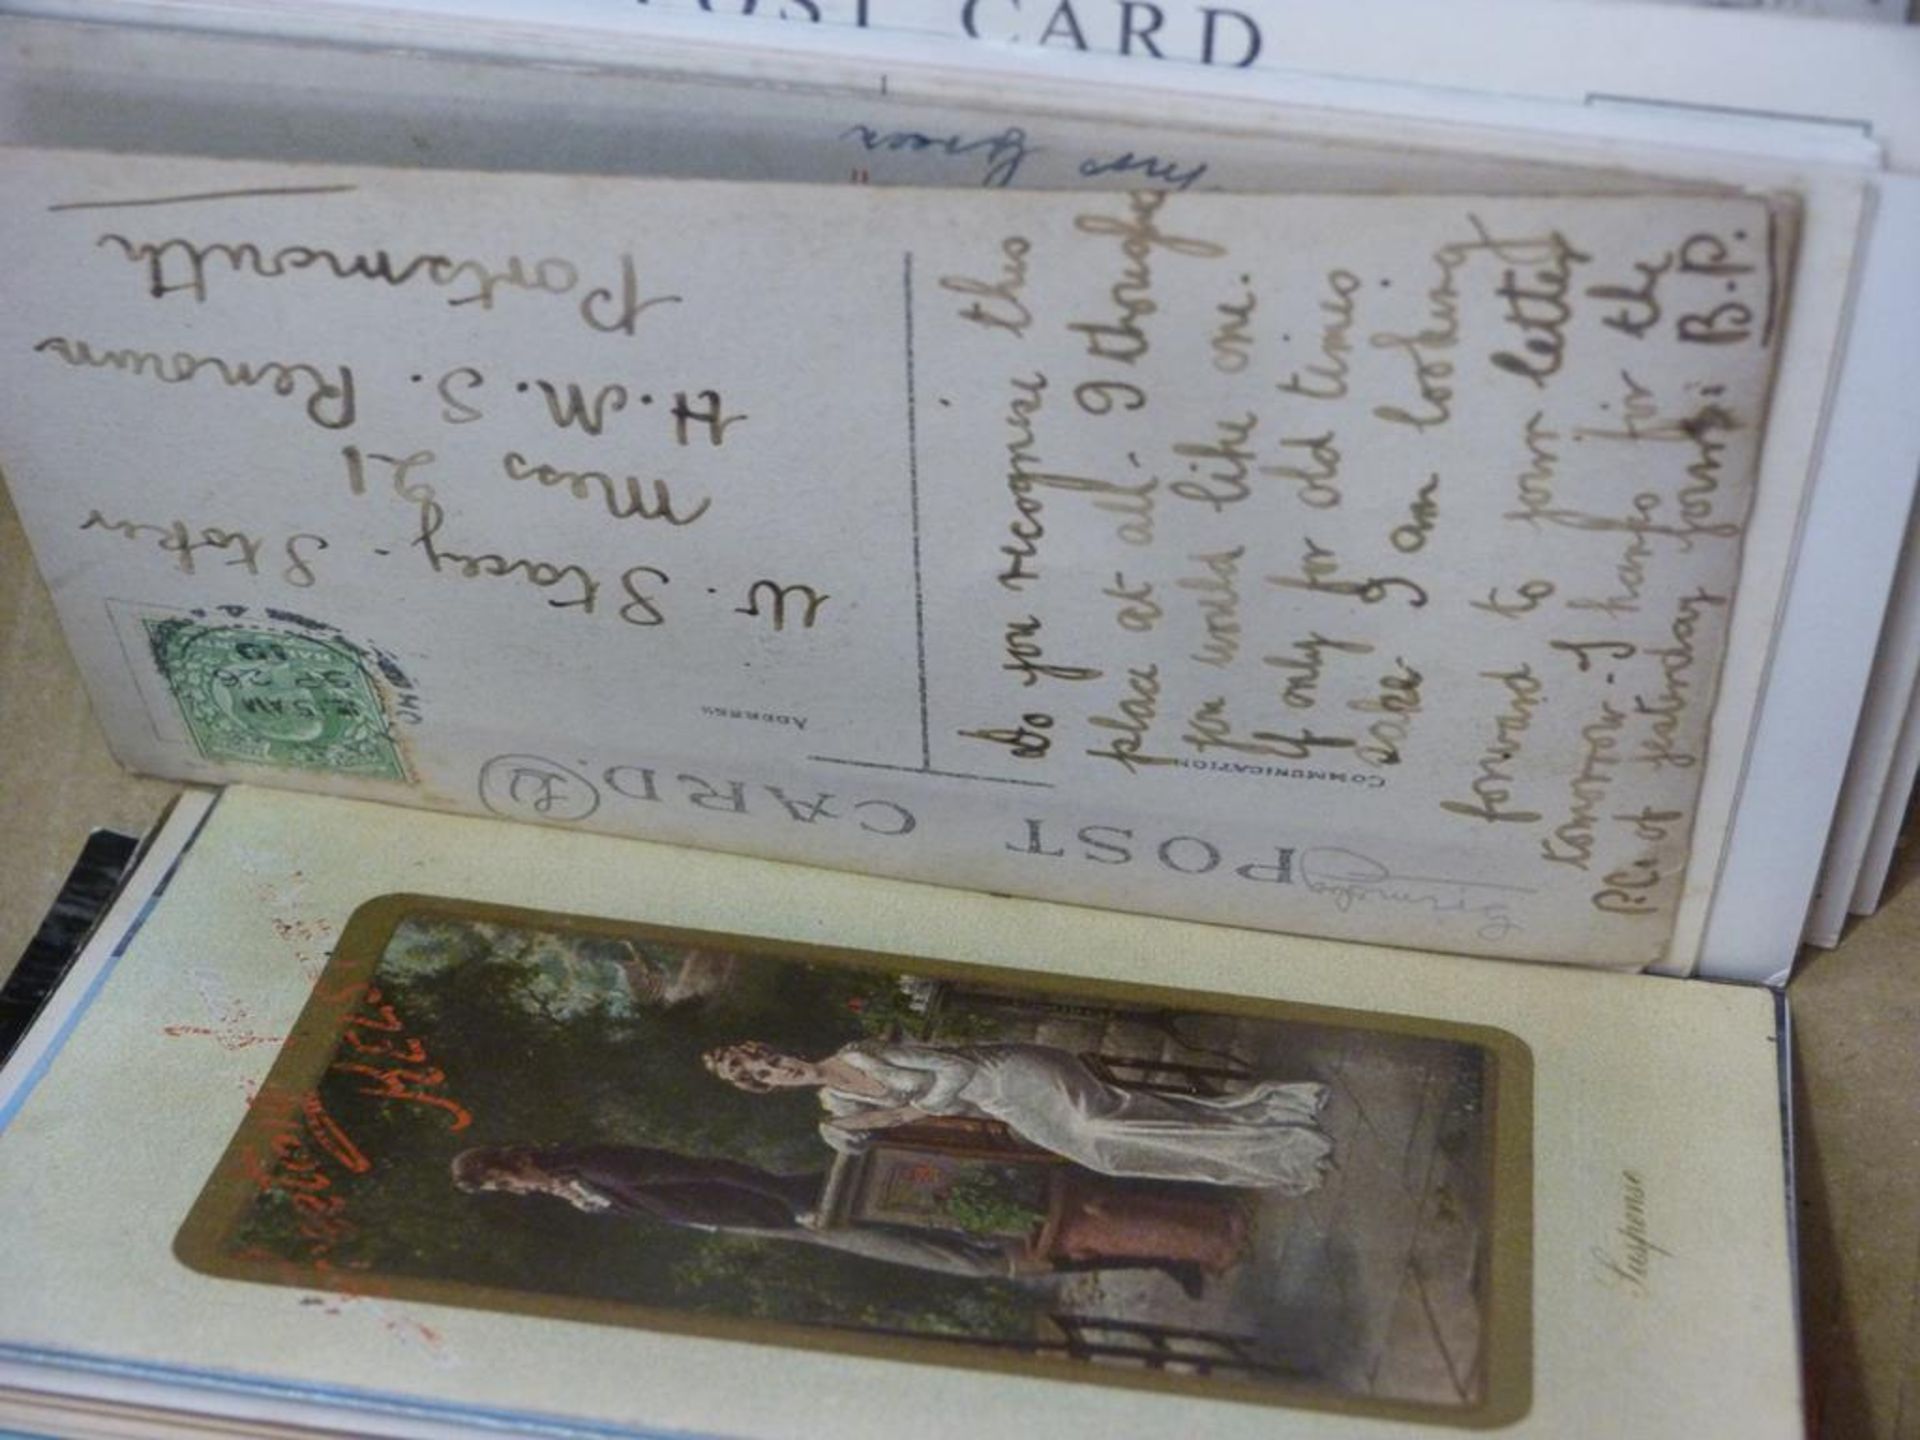 POST CARD
Mrs Green
Thursday
POST CARD.
COMMUNICATION
ADDRESS
Do you recognise this
place at all. I thought
you would like one.
If only for old times
sake I am looking
forward to your letter
tomorrow - I thanks for the
P.C. of yesterday yours: B.P.
5 AM
26
10
W. Stacey. Stoker
Mess 21
H.M.S. Renown
Portsmouth
Suspense